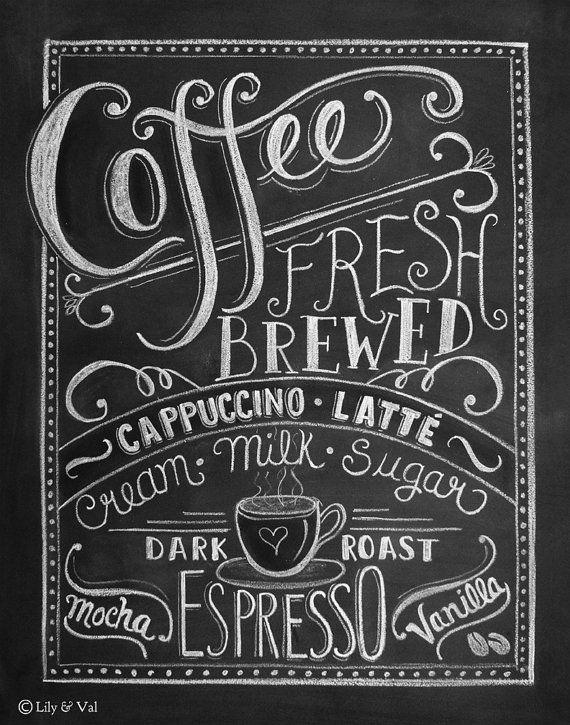 Coffee
FRESH
BREWED
CAPPUCCINO · LATTÉ
cream · milk · sugar
DARK ROAST
ESPRESSO
Mocha
Vanilla
© Lily & Val